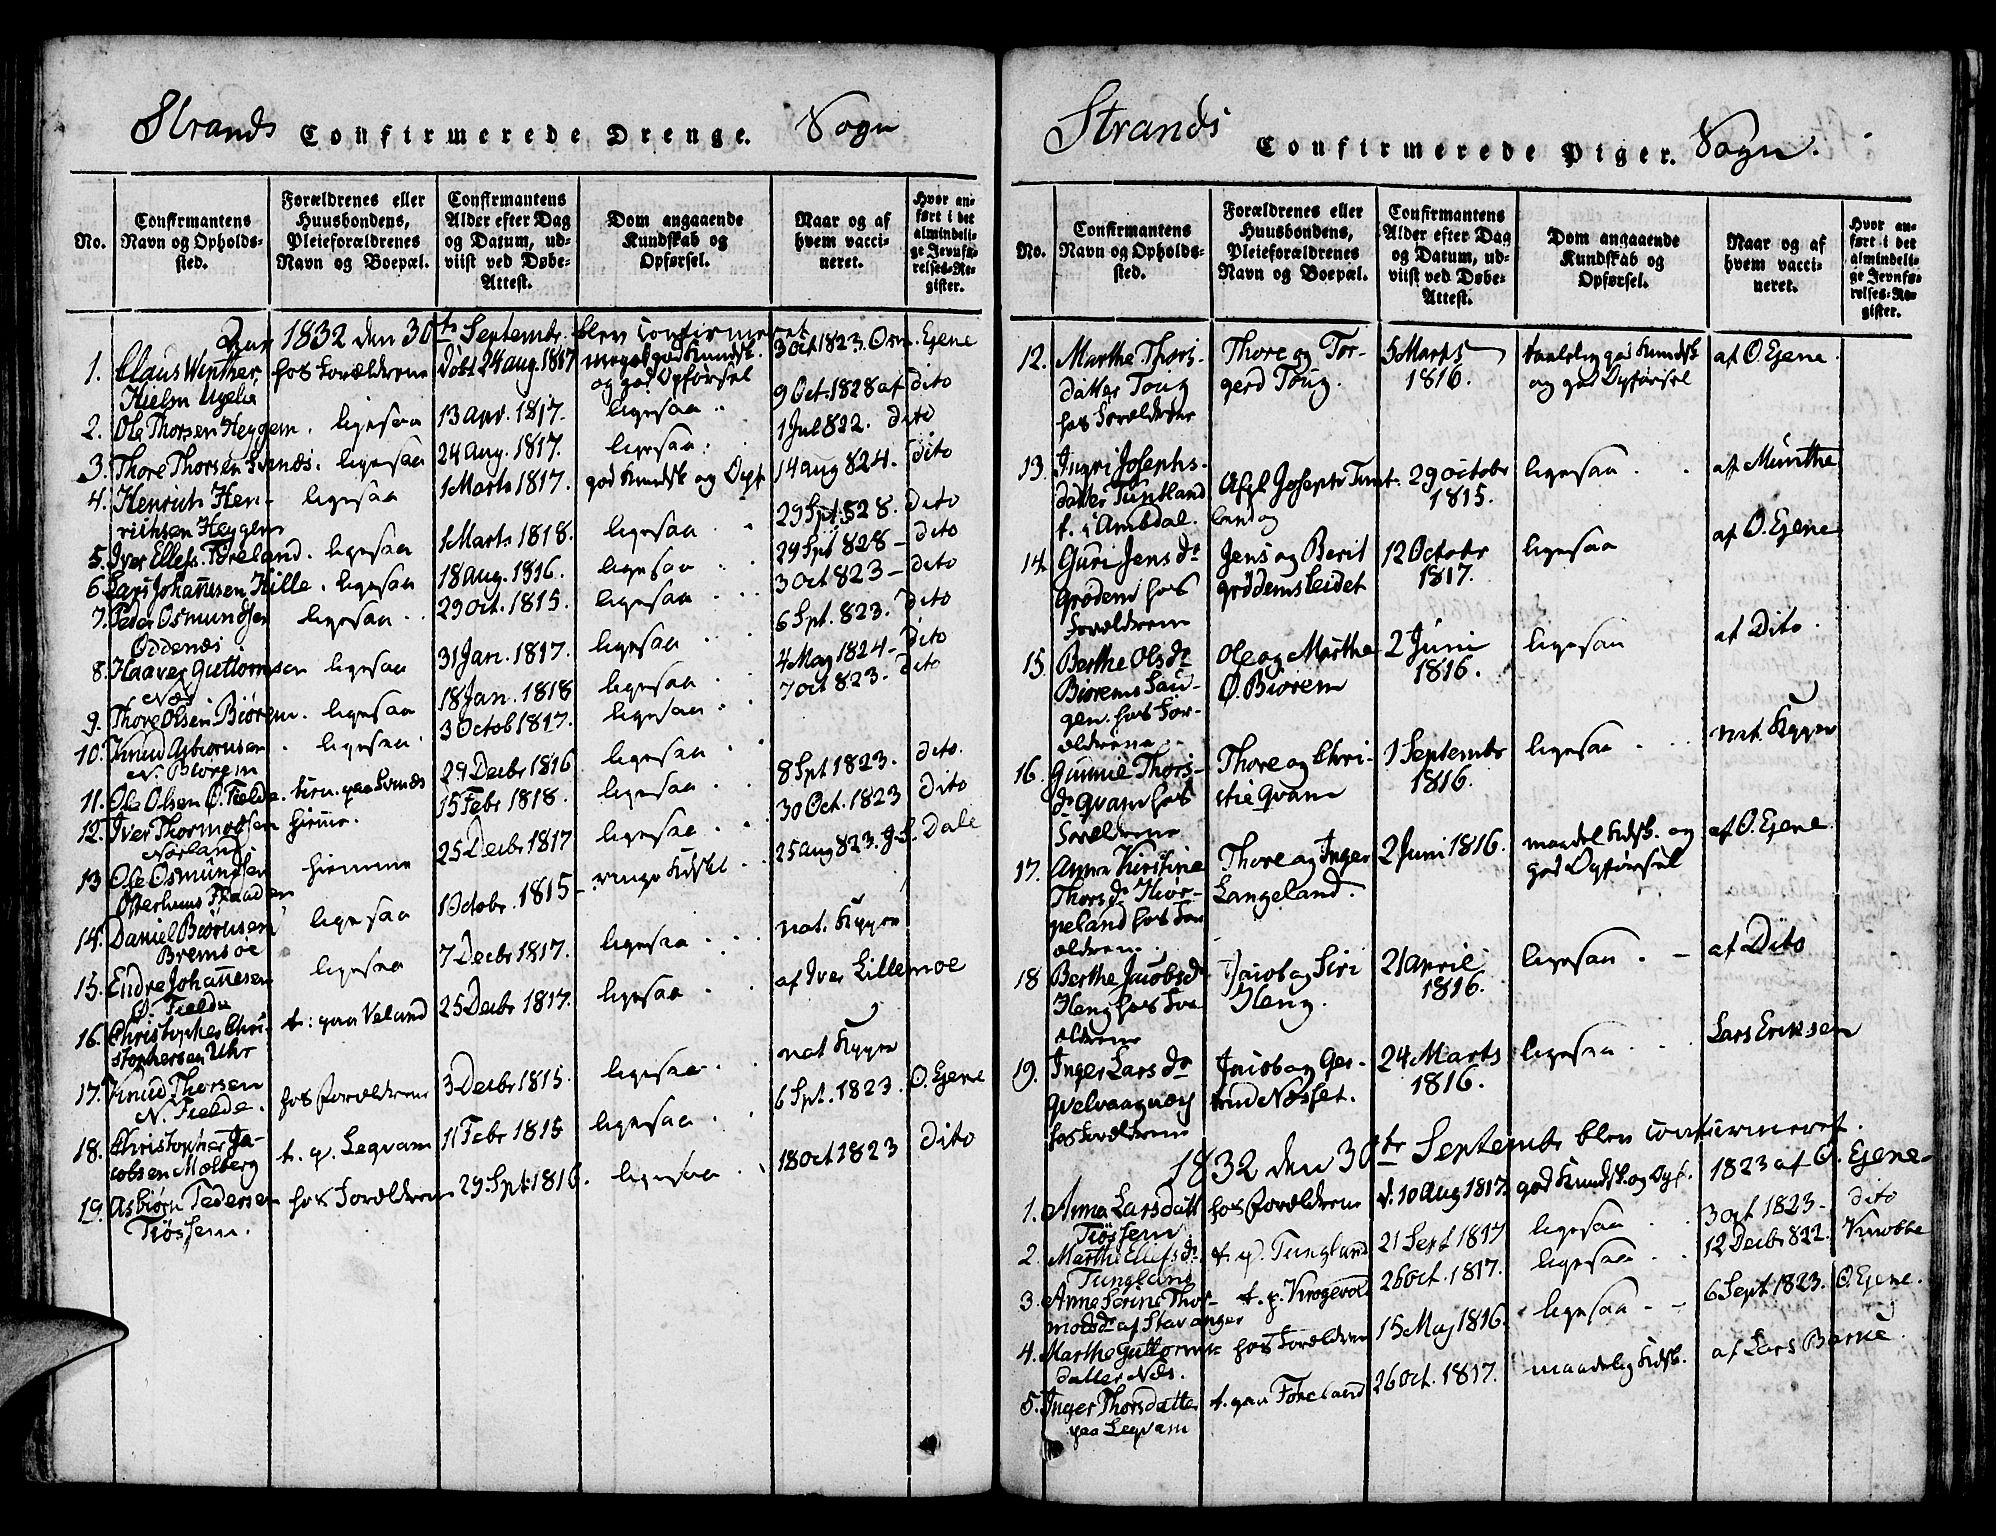 Strands Confirmerede Drenge. Sogn
No.
Confirmantens Navn og Opholdssted.
Forældrenes eller Huusbondens, Pleieforældrenes Navn og Boepæl.
Confirmantens Alder efter Dag og Datum, udviist ved Døbe-Attest.
Dom angaaende Kundskab og Opførsel.
Naar og af hvem vaccineret.
Hvor anført i det almindelige Jevnførelses-Register.
Aar 1832 den 30te Septembr. blev confirmeret
1. Claus Winther hos Forældrene Døbt 24 aug. 1817 meget god Kundsk. 3 Oct 1823. Osm. Ejene
Kielsn og god Opførsel
2. Ole Thorsen Heggem. ligesaa 13 apr. 1817. ligesaa 9 Oct. 1828 af dito
3. Thore Thorsen Svnæs. ligesaa 24 Aug. 1817. ligesaa. 1 Jul 822. dito
4. Henrich Hen- ligesaa 1 Marts 1817. god Kundsk og Opf. 14 aug 824. dito
richsen Heggem
5. Iver Ellefs. Foreland. ligesaa 1 Marts 1818. ligesaa 29 Spt. 828. dito
6. Lars Johannesen Kille. ligesaa 18 aug. 1816. ligesaa 29 Spt 828 - dito
7. Peder Osmundsen ligesaa 29 Oct. 1815. ligesaa 3 Oct 823 - dito
Oddenæs
8. Haaver Guttormsen ligesaa 31 Jan. 1817. ligesaa 6 Spt. 823. dito
Næs
9. Thore Olsen Biørem. ligesaa 18 Jan. 1818 ligesaa 4 May 1824 - dito
10. Knud Asbiørnsen ligesaa 3 Octob 1817. ligesaa 7 Oct 823. dito
N. Biørem
11. Ole Olsen Ø. Fielde. tien. paa Svnæs 29 Decbr 1816 ligesaa 8 Spt 1823. dito.
12. Iver Thormodsen hiemme. 15 Febr 1818. ligesaa 30 Oct. 1823 dito
Norland
13 Ole Osmundsen hiemme 25 Decbr 1817 ligesaa 25 Aug 823. G. S. Dale
Østerhuus
14. Daniel Biørnsen ligesaa 1 Octobr. 1815 - ringe Kdskb nat. Kopper
Bremsøe
15. Endre Johannesen ligesaa 7 Decbr 1817. ligesaa af Iver Lillemoe
Ø. Fielde
16. Christopher Chri- t: paa Veland 25 Decbr 1817. ligesaa nat Kopper
stophersen Uhr
17. Knud Thorsen hos Forældrene 3 Decbr 1815. ligesaa 6 Spt. 1823. O. Ejene
N. Fielde.
18. Christopher Ja- t. p. Leqvam 11 Febr 1815 ligesaa 18 Oct 1823 dito
cobsen Molberg
19. Asbiørn Pedersen hos Forældrene 29 Spt. 1816. ligesaa
Tiøssem.
Strands Confirmerede Piger. Sogn.
No.
Confirmantens Navn og Opholdssted.
Forældrenes eller Huusbondens, Pleieforældrenes Navn og Boepæl.
Confirmantens Alder efter Dag og Datum, udviist ved Døbe-Attest.
Dom angaaende Kundskab og Opførsel.
Naar og af hvem vaccineret.
Hvor anført i det almindelige Jevnførelses-Register.
12. Marthe Thors- Thore og Tor- 5 Marts taalelig god Kundsk af O. Ejene.
datter Toug gerd Toug. 1816. og god Opførsel
hos Forældrene
13. Ingri Josephs- Afgl. Joseph Tunt- 29 October ligesaa af Münthe
datter Tuntland land og 1815.
t. i Ambdal.
14. Guri Jens dr Jens og Berit 12 Octobr ligesaa af O. Ejene
Grødem hos grødemsleidet 1817.
Forældrene
15. Berthe Ols dr Ole og Marthe 2 Juni ligesaa af Dito.
Biørems hau- Ø. Biørem 1816.
gen. hos For-
ældrene
16. Gunnil Thors- Thore og Chri- 1 Septembr ligesaa nat. Kopper
dr Qvam hos stie Qvam 1816.
Forældrene
17. Anna Kirstine Thore og Inger 2 Juni 1816. maadel Kdsk. og af O. Ejene.
Thors dr Kiør- Langeland. god Opførsel
neland hos For-
ældrene.
18 Berthe Jacobs dr Jacob og Siri 21 April ligesaa - af Dito
Heng hos For- Heng. 1816.
ældrene
19. Inger Lars dr Jacob og Ger- 24 Marts ligesaa Lars Eriksen
Qvelvaagnæs trud Næsset. 1816.
hos Forældrene
1832 den 30te Septembr blev confirmeret.
1. Anna Larsdatt hos Forældrene d. 10 Aug 1817. god Kundsk. og Opf. 1823 af O. Ejene-
Tiøssem
2. Marthe Ellefs dr t. p. Tungland 21 Sept 1817 ligesaa 3 Oct 1823- dito
Tungland
3. Anne Serine Thor- t. p. Krogevold 26 Oct. 1817. ligesaa 12 Decbr 822. Knobbe
mods dr af Stavanger
4. Marthe Guttorms- hos Forældrene 15 May 1816. ligesaa - - 6 Sept 1823. O. Ejene.
datter Næs.
5. Inger Thorsdatter t. paa Foreland 26 Oct. 1817. maadelig Kdsk. af Lars Barke
paa Leqvam